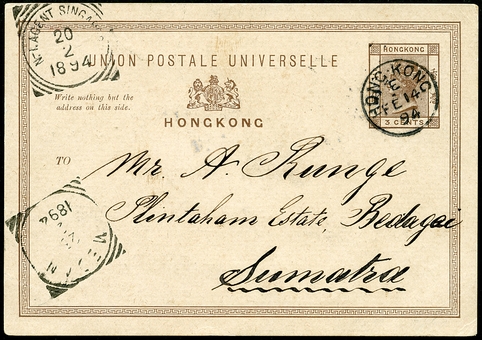 N-I.AGENT SINGA
20
2
1894
UNION POSTALE UNIVERSELLE
HONGKONG
3 CENTS
HONG-KONG
E
FE 14
94
Write nothing but the
address on this side.
HONGKONG
TO
Mr. A. Runge
Plintaham Estate, Bedagai
Sumatra
1894